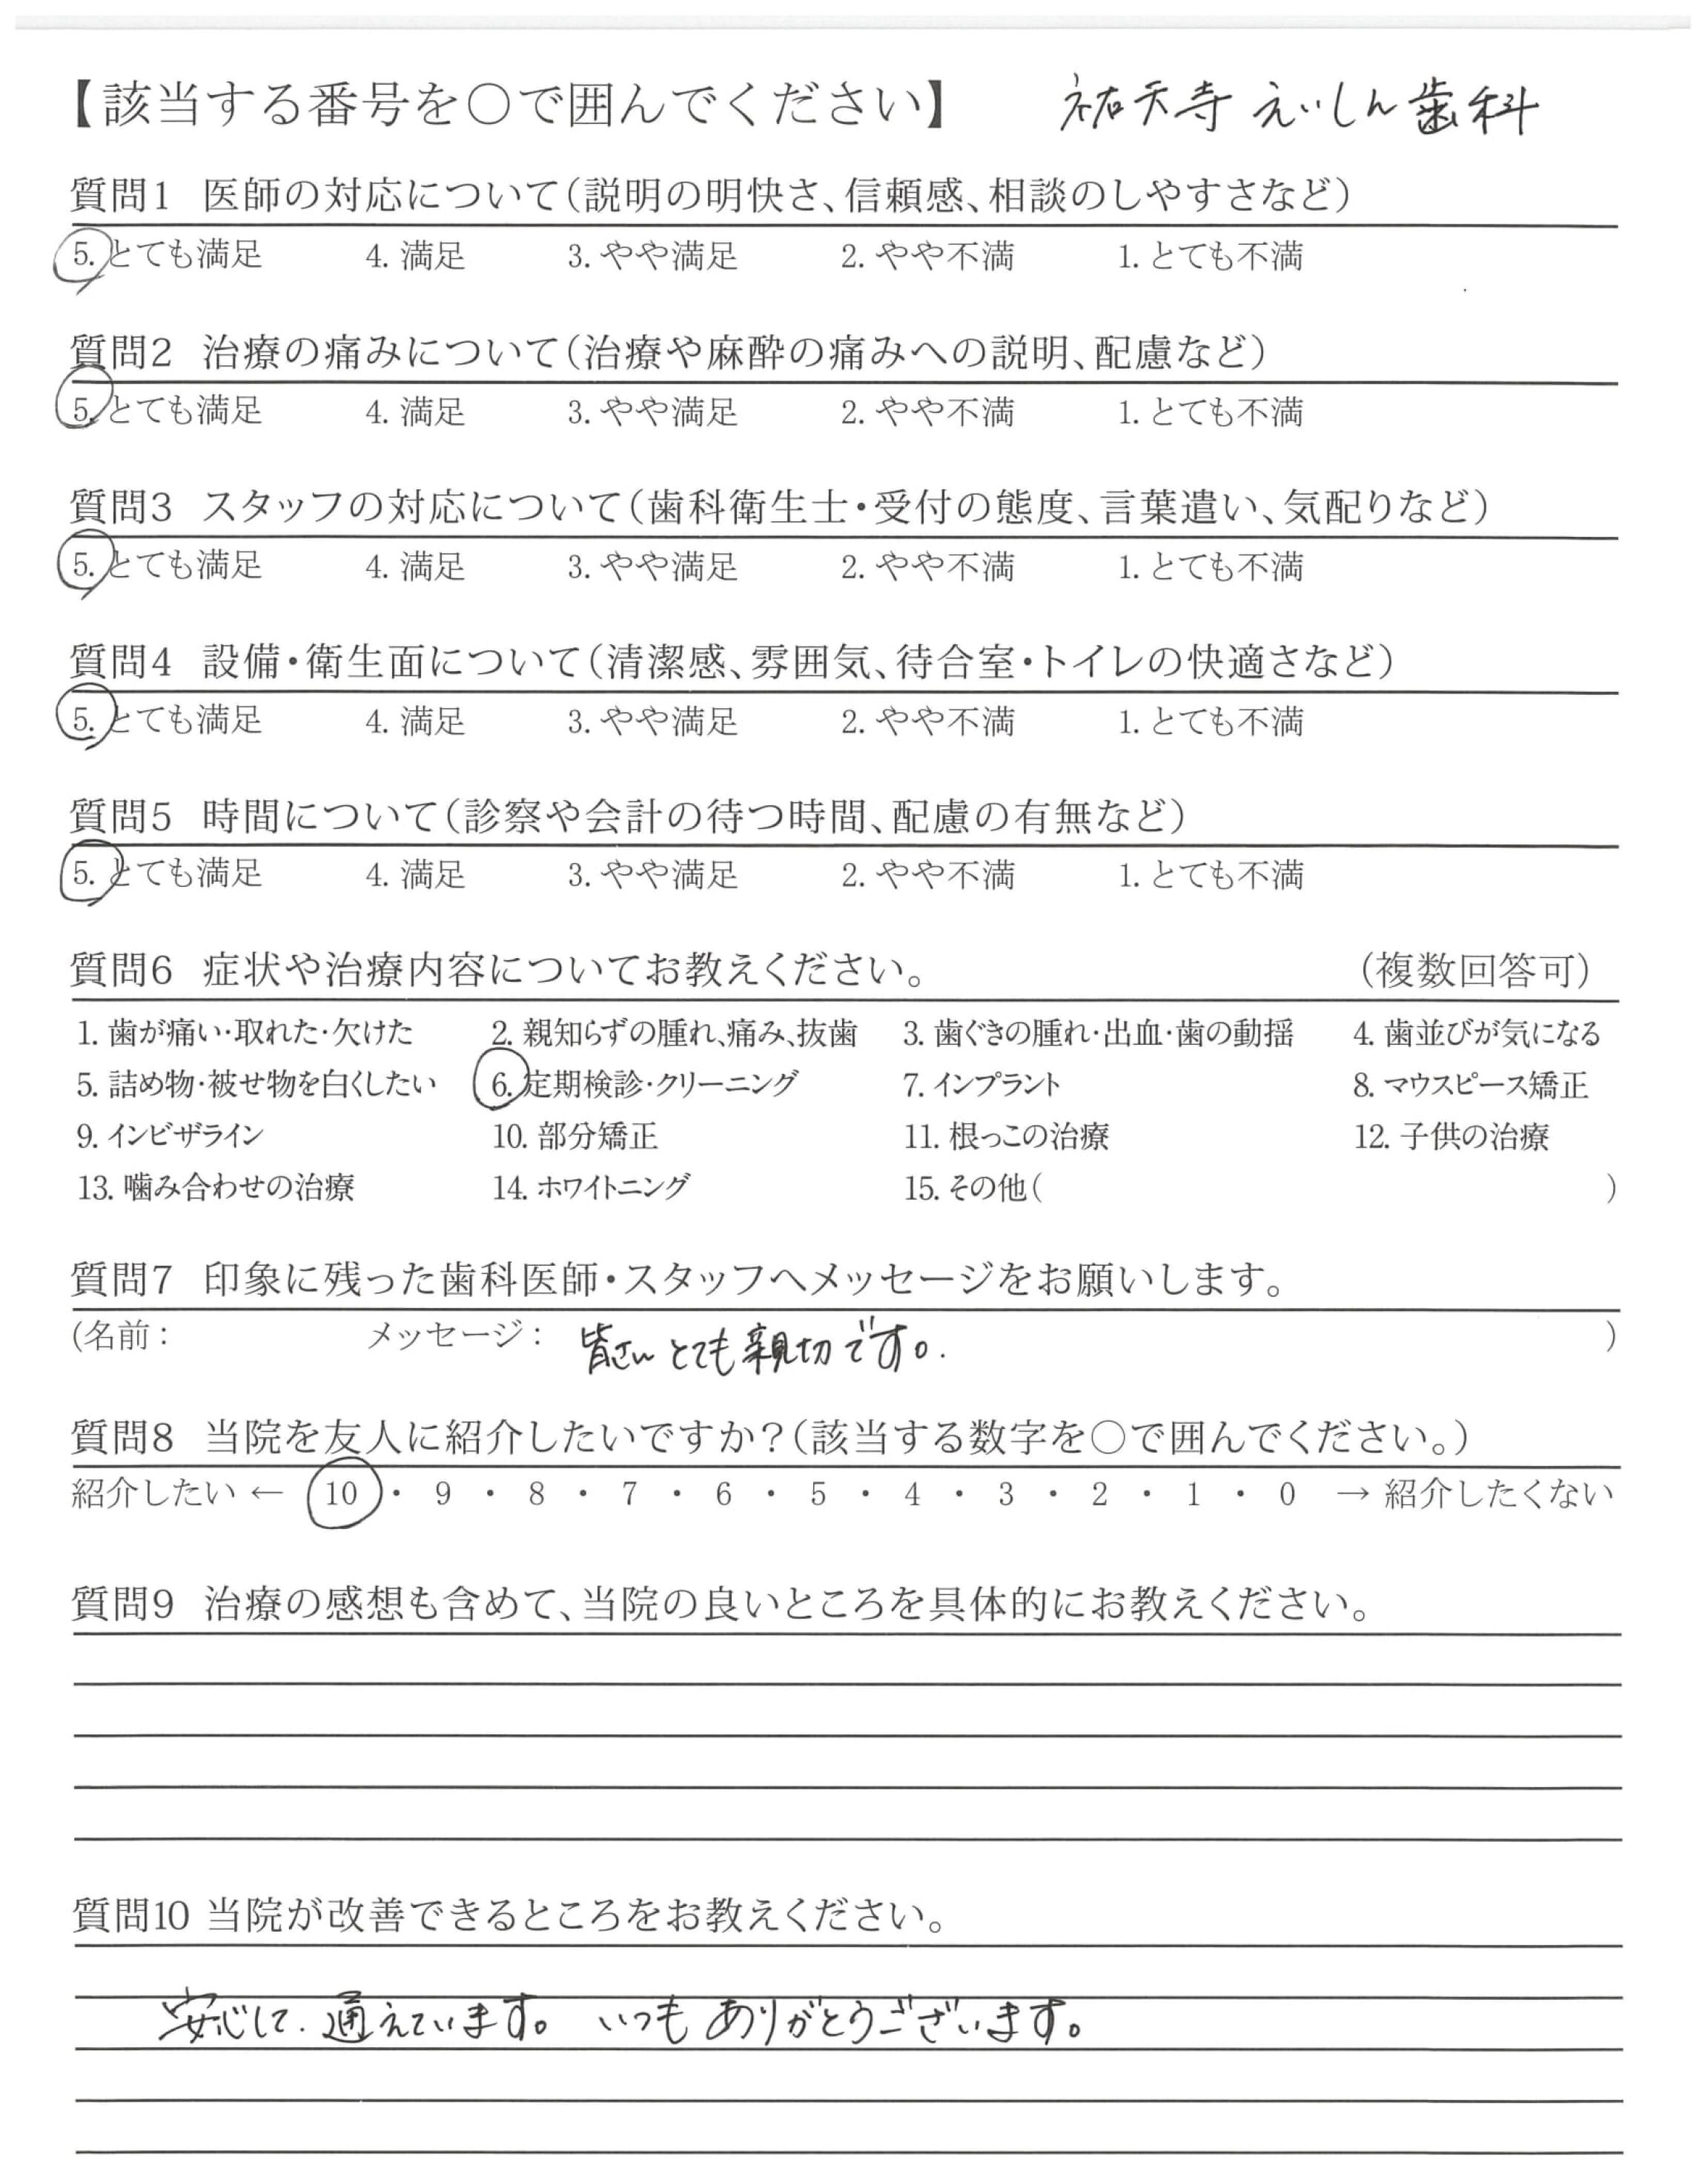 【該当する番号を○で囲んでください】 祐天寺 えいしん歯科
質問1 医師の対応について(説明の明快さ、信頼感、相談のしやすさなど)
5. とても満足 4. 満足 3. やや満足 2. やや不満 1. とても不満
質問2 治療の痛みについて(治療や麻酔の痛みへの説明、配慮など)
5. とても満足 4. 満足 3. やや満足 2. やや不満 1. とても不満
質問3 スタッフの対応について(歯科衛生士・受付の態度、言葉遣い、気配りなど)
5. とても満足 4. 満足 3. やや満足 2. やや不満 1. とても不満
質問4 設備・衛生面について(清潔感、雰囲気、待合室・トイレの快適さなど)
5. とても満足 4. 満足 3. やや満足 2. やや不満 1. とても不満
質問5 時間について(診察や会計の待つ時間、配慮の有無など)
5. とても満足 4. 満足 3. やや満足 2. やや不満 1. とても不満
質問6 症状や治療内容についてお教えください。 (複数回答可)
1. 歯が痛い・取れた・欠けた 2. 親知らずの腫れ、痛み、抜歯 3. 歯ぐきの腫れ・出血・歯の動揺 4. 歯並びが気になる
5. 詰め物・被せ物を白くしたい 6. 定期検診・クリーニング 7. インプラント 8. マウスピース矯正
9. インビザライン 10. 部分矯正 11. 根っこの治療 12. 子供の治療
13. 噛み合わせの治療 14. ホワイトニング 15. その他( )
質問7 印象に残った歯科医師・スタッフへメッセージをお願いします。
(名前: メッセージ: 皆さんとても親切です。 )
質問8 当院を友人に紹介したいですか?(該当する数字を○で囲んでください。)
紹介したい ← 10 ・ 9 ・ 8 ・ 7 ・ 6 ・ 5 ・ 4 ・ 3 ・ 2 ・ 1 ・ 0 → 紹介したくない
質問9 治療の感想も含めて、当院の良いところを具体的にお教えください。
質問10 当院が改善できるところをお教えください。
安心して通えています。 いつもありがとうございます。